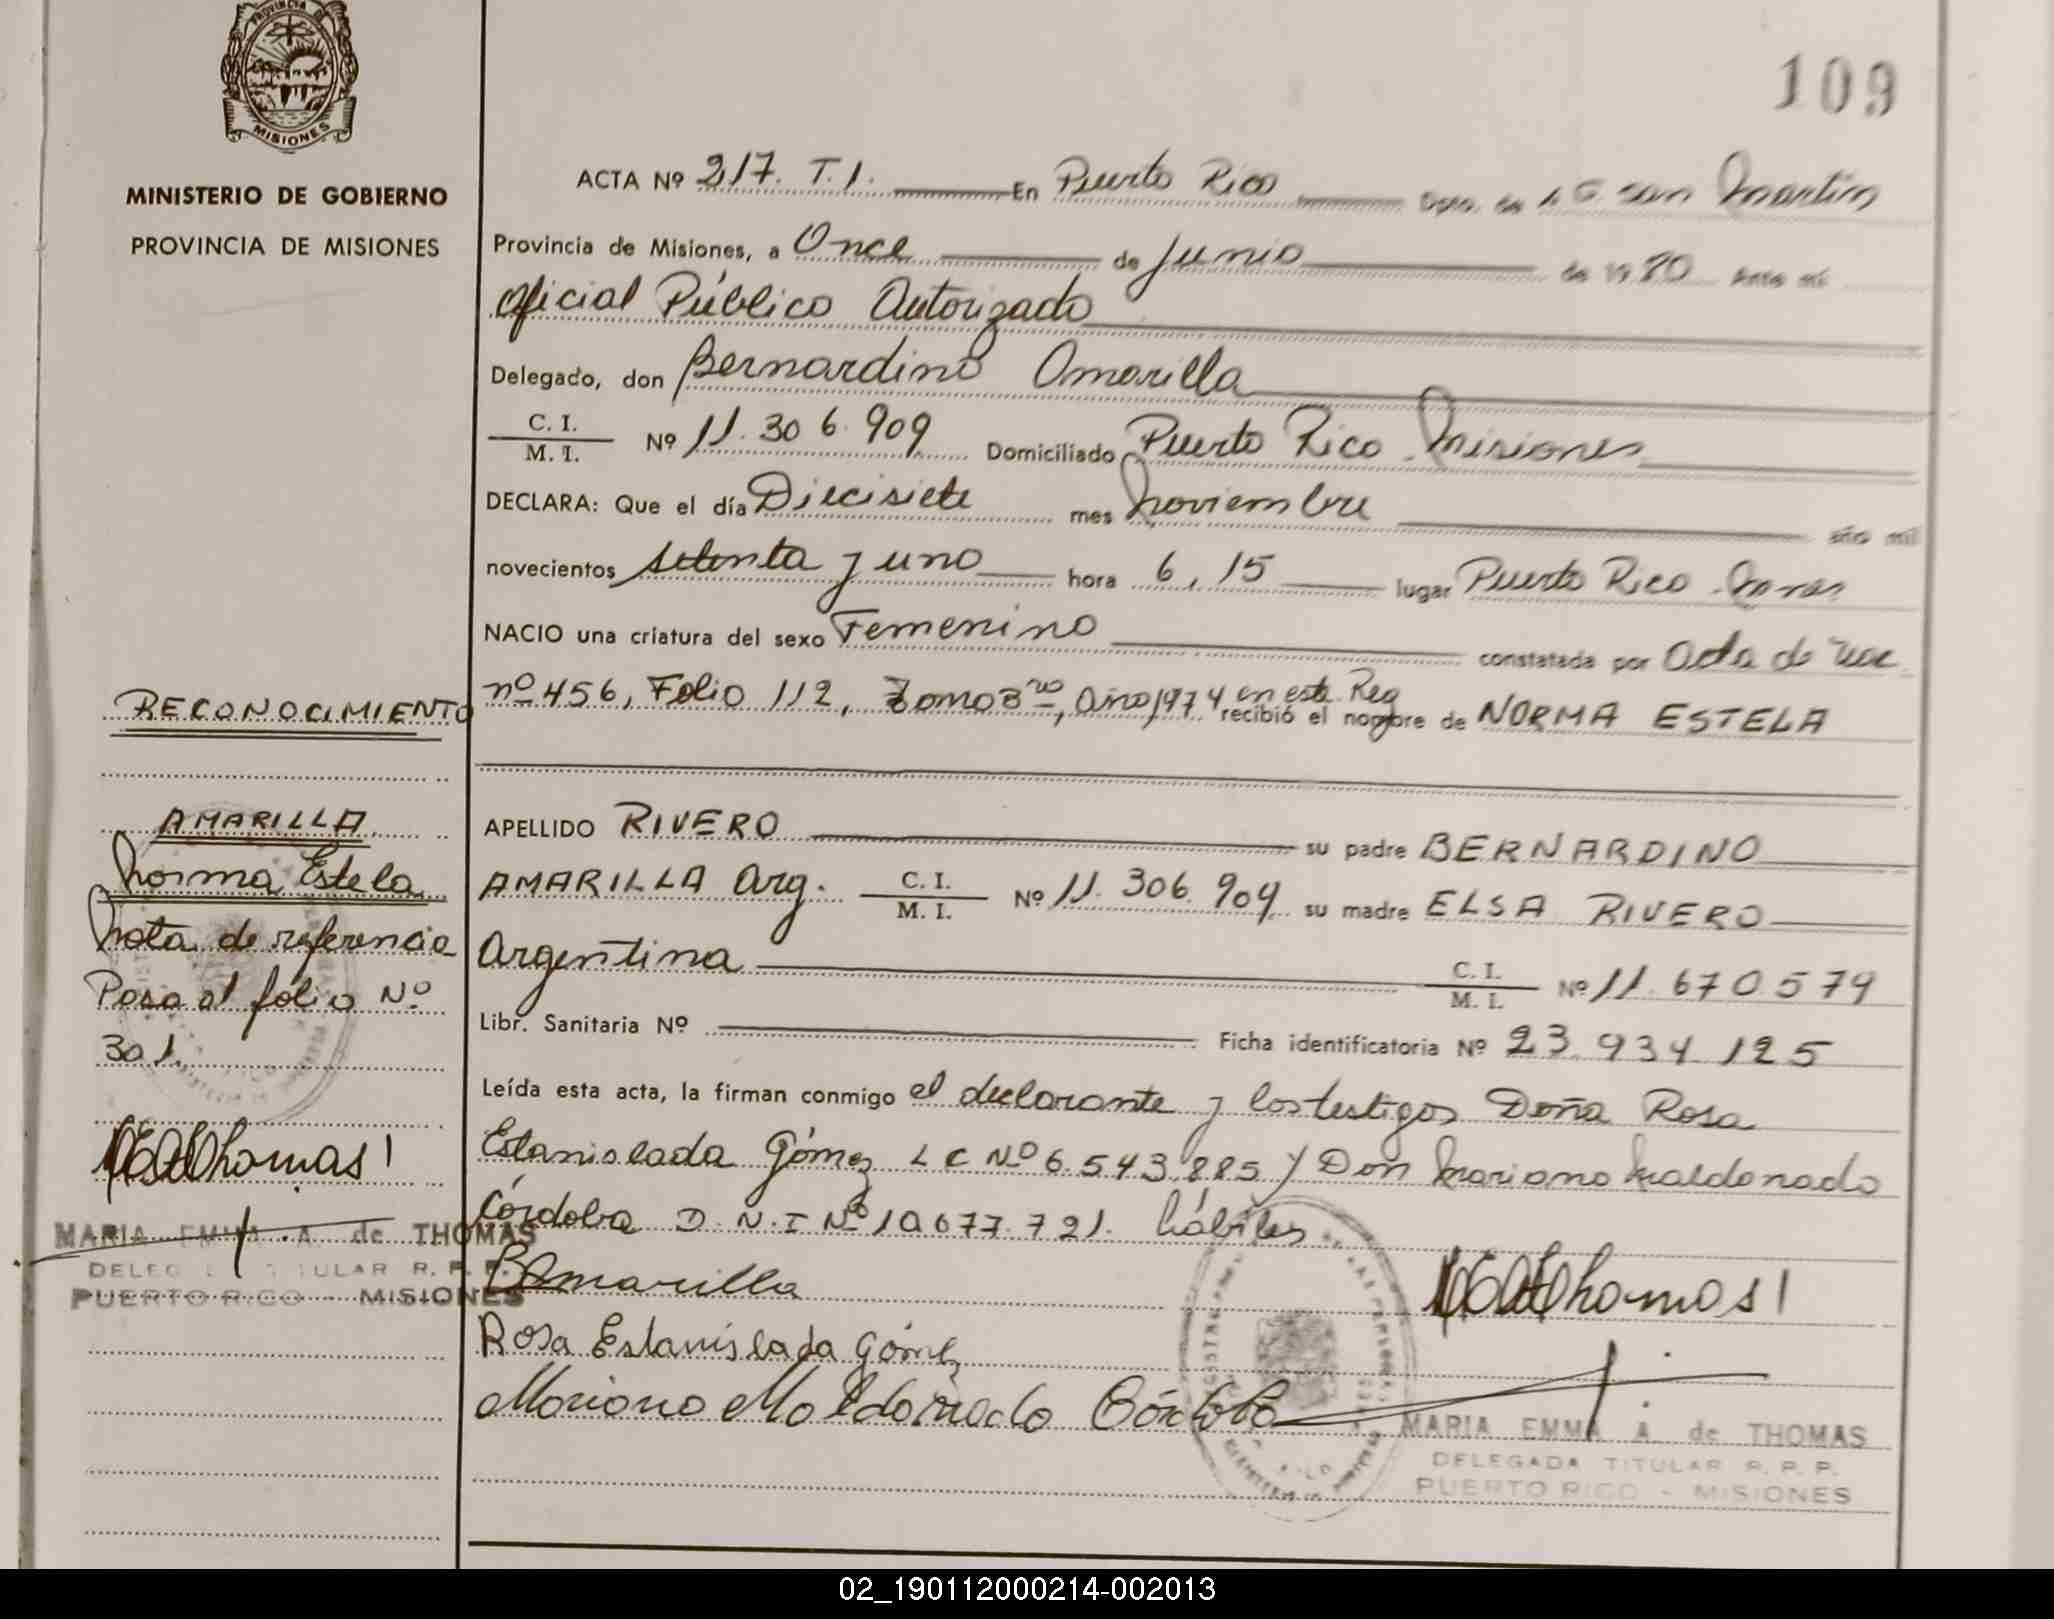 109
PROVINCIA DE
MISIONES
MINISTERIO DE GOBIERNO
PROVINCIA DE MISIONES
ACTA Nº 217. T. I. En Puerto Rico Dpto. de L G. San Martin
Provincia de Misiones, a Once de Junio de 1980 Ante mí
Oficial Público Autorizado
Delegado, don Bernardino Amarilla
C. I.
M. I. Nº 11.306.909 Domiciliado Puerto Rico Misiones
DECLARA: Que el día Diecisiete mes Noviembre año mil
novecientos setenta y uno hora 6,15 lugar Puerto Rico
NACIO una criatura del sexo Femenino constatada por Acta de Nac
nº 456, Folio 112, Tomo 3ro, Año 1974 en este Reg recibió el nombre de NORMA ESTELA
APELLIDO RIVERO su padre BERNARDINO
AMARILLA Arg. C. I. M. I. Nº 11.306.909 su madre ELSA RIVERO
Argentina C. I. M. I. Nº 11.670579
Libr. Sanitaria Nº Ficha identificatoria Nº 23.934.125
Leída esta acta, la firman conmigo el declarante y los testigos Doña Rosa
Estanislada Gómez L C Nº 6.543.885 y Don Mariano Maldonado
Córdoba D.N.I Nº 10677.721. hábiles
BAmarilla
Rosa Estanislada Gómez
Mariano Maldonado Córdoba
MARIA EMMA A. de THOMAS
DELEGADA TITULAR R. P. P.
PUERTO RICO - MISIONES
RECONOCIMIENTO
AMARILLA
Norma Estela
Nota de referencia
Pasa al fólio Nº
301.
MARIA EMMA A. de THOMAS
PUERTO RICO - MISIONES
02_190112000214-002013